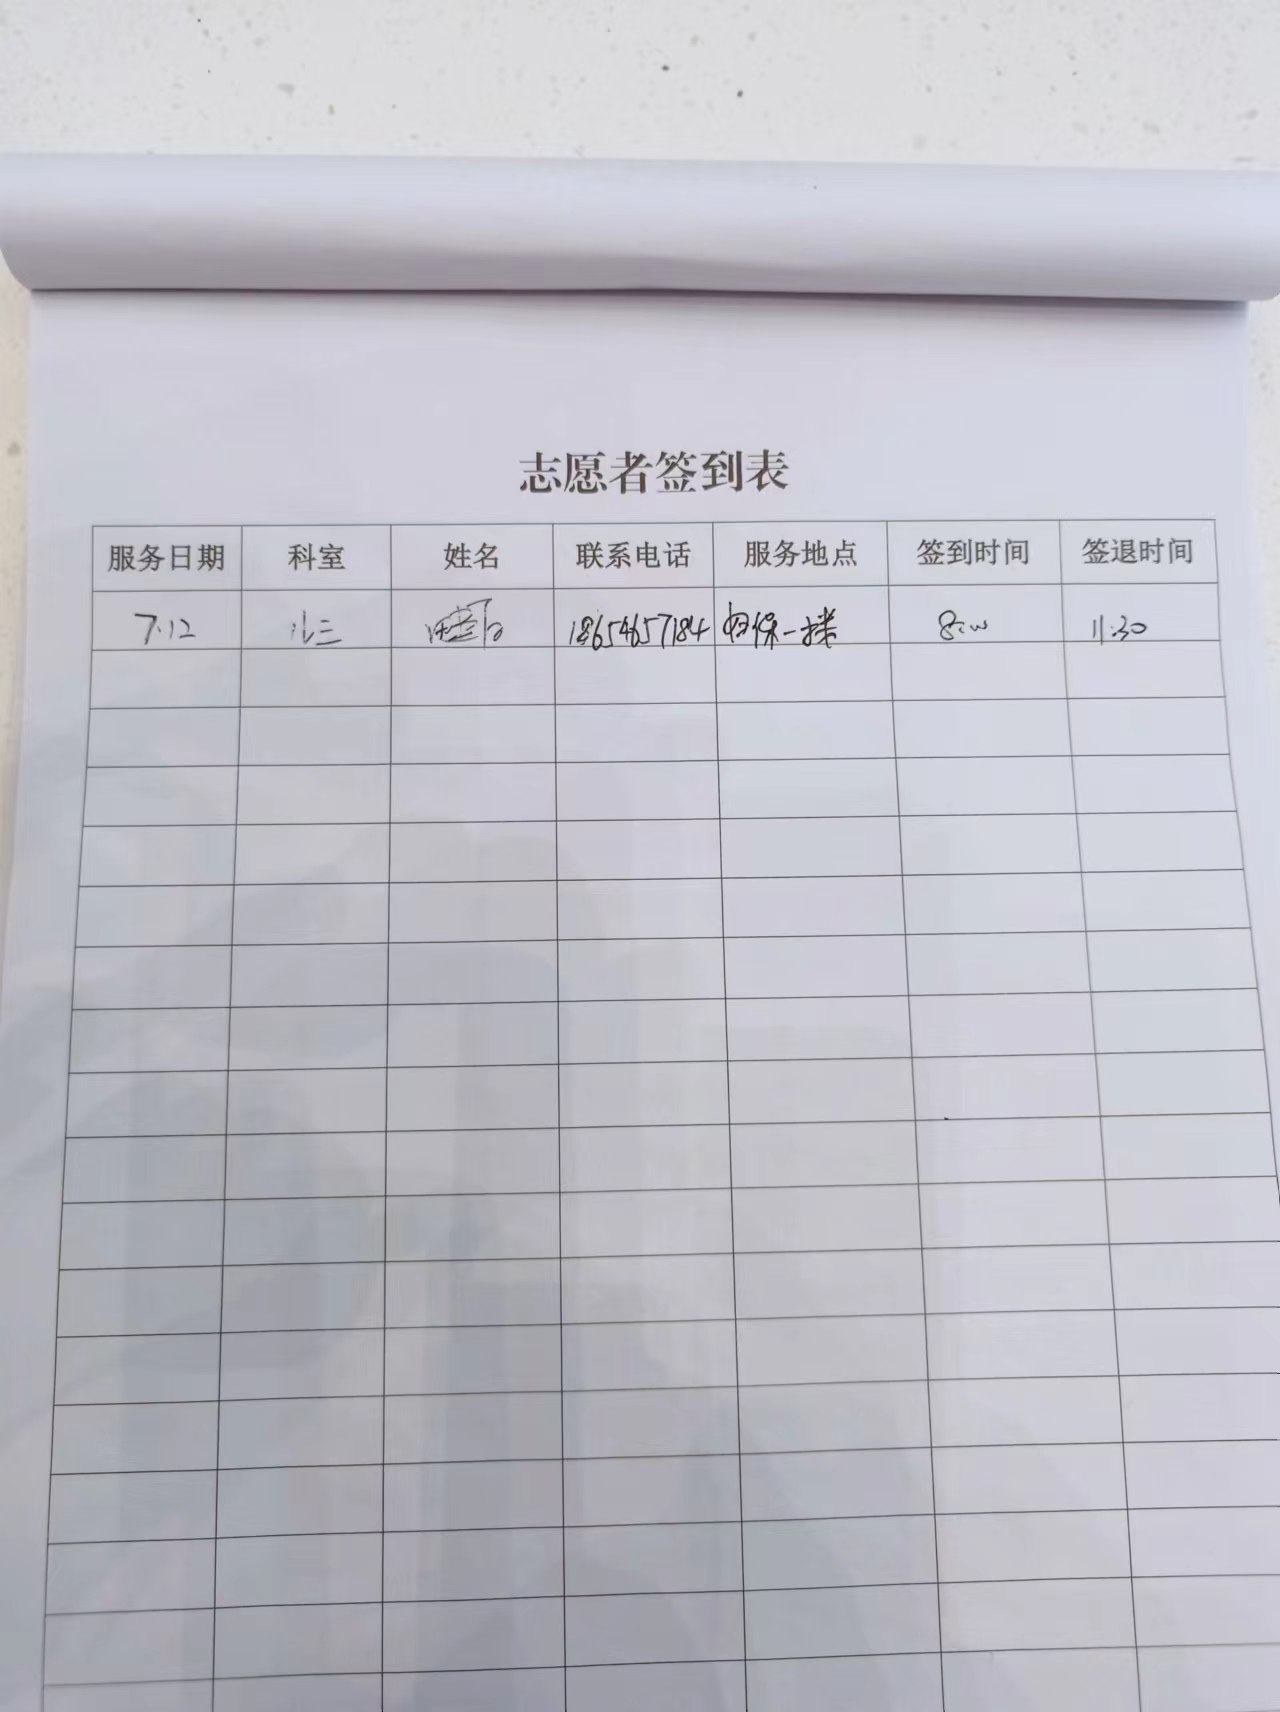 志愿者签到表
服务日期 科室 姓名 联系电话 服务地点 签到时间 签退时间
7.12 儿三 18654657184 妇保一楼 8:00 11:30